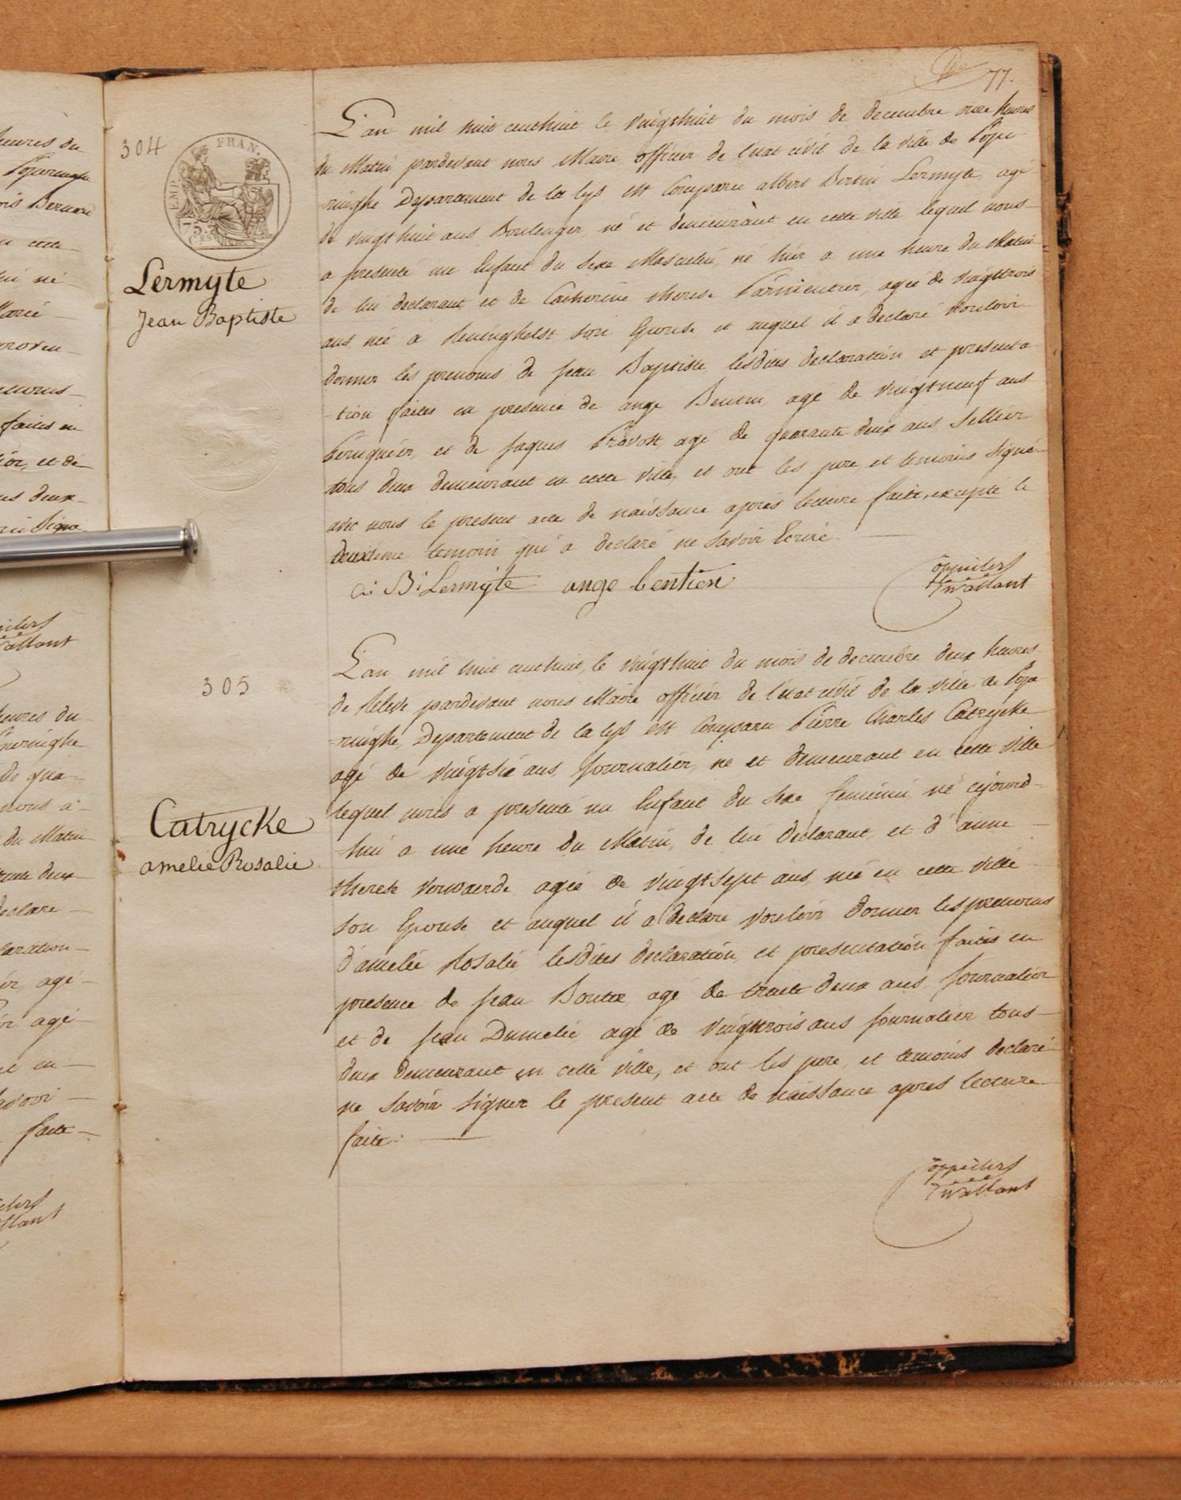 77.
304
EMP. FRAN.
75
Lermyte
Jean Baptiste
L'an mil huit cent huit le vingthuit du mois de decembre onze heures
du Matin pardevant nous Maire officier de l'etat civil de la ville de Pope
ringhe Departement de la lys est Comparu albert Bertin Lermyte, agé
de vingthuit ans Boulenger né et demeurant en cette ville lequel nous
a presenté un Enfant du Sexe Masculin né hier a une heure du Matin
de lui declarant et de Catherine therese Parmentier, agée de vingttrois
ans née a Reninghelst son Epouse et auquel il a declaré vouloir
donner les prenoms de Jean Baptiste lesdites declaration et presenta
tion faites en presence de ange Bentin agé de vingtneuf ans
Perruquier, et de Jaques Prevost agé de quarante deux ans Sellier
tous deux demeurant en cette ville, et ont les pere et temoins signé
avec nous le present acte de naissance apres lecture faite, excepté le
deuxieme temoin qui a declaré ne savoir Ecrire
a: B: Lermyte ange bentien
305
Catrycke
amelie Rosalie
L'an mil huit cent huit, le vingthuit du mois de decembre deux heures
de Releve pardevant nous Maire officier de l'etat civil de la ville de Pope
ringhe, Departement de la lys est Comparu Pierre Charles Catrycke
agé de vingtsix ans, Journalier, né et demeurant en cette ville
lequel nous a presenté un Enfant du Sexe feminin né cejourd-
hui a une heure du Matin, de lui declarant et d'anne
therese Verwaerde agée de vingtsept ans, née en cette ville
son Epouse et auquel il a declaré vouloir donner les prenoms
d'amelie Rosalie lesdites declaration et presentation faites en
presence de Jean Boutex agé de trente deux ans Journalier
et de Jean Dumelie agé de vingttrois ans Journalier tous
deux demeurant en cette ville, et ont les pere et temoins declaré
ne savoir signer le present acte de naissance apres lecture
faite.